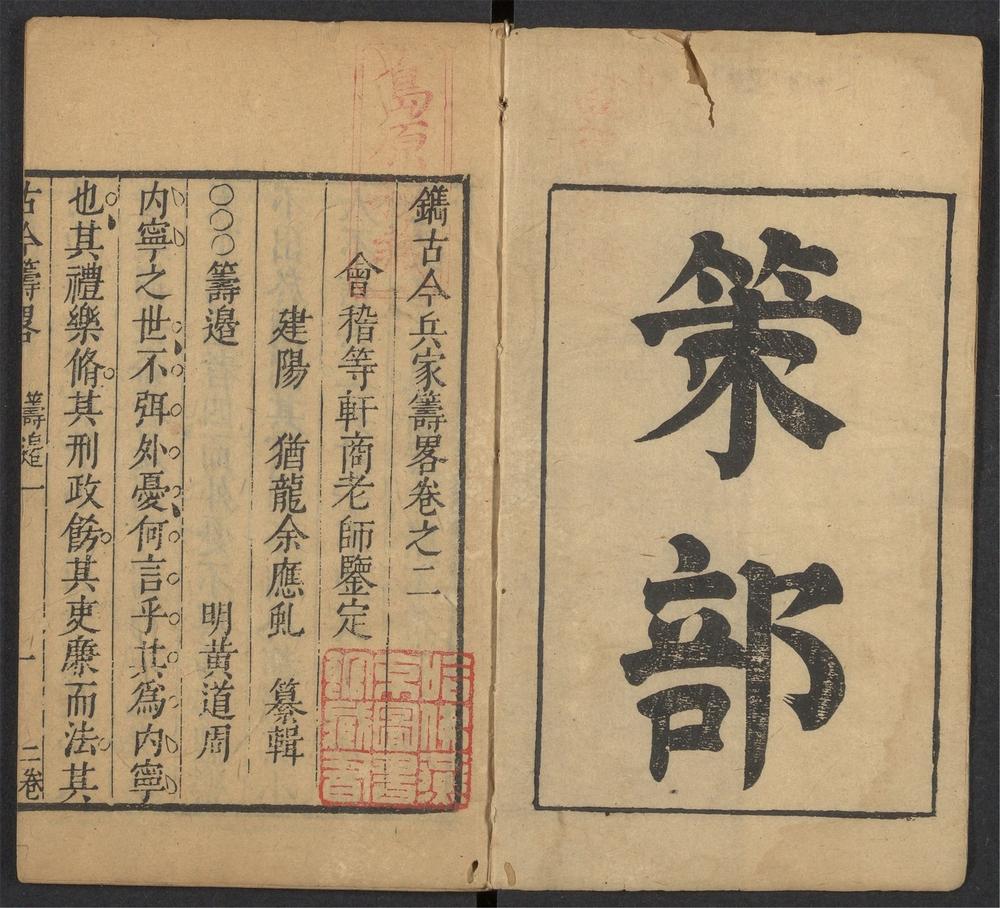 策部
鐫古今兵家籌畧卷之二
會稽等軒商老師鑒定
建陽 猶龍余應虬 纂輯
○○○籌邉 明黄道周
内寧之世不弭外憂何言乎其為内寧
也其禮樂脩其刑政飭其吏廉而法其
古今籌畧 籌邉一 一 二卷
島原